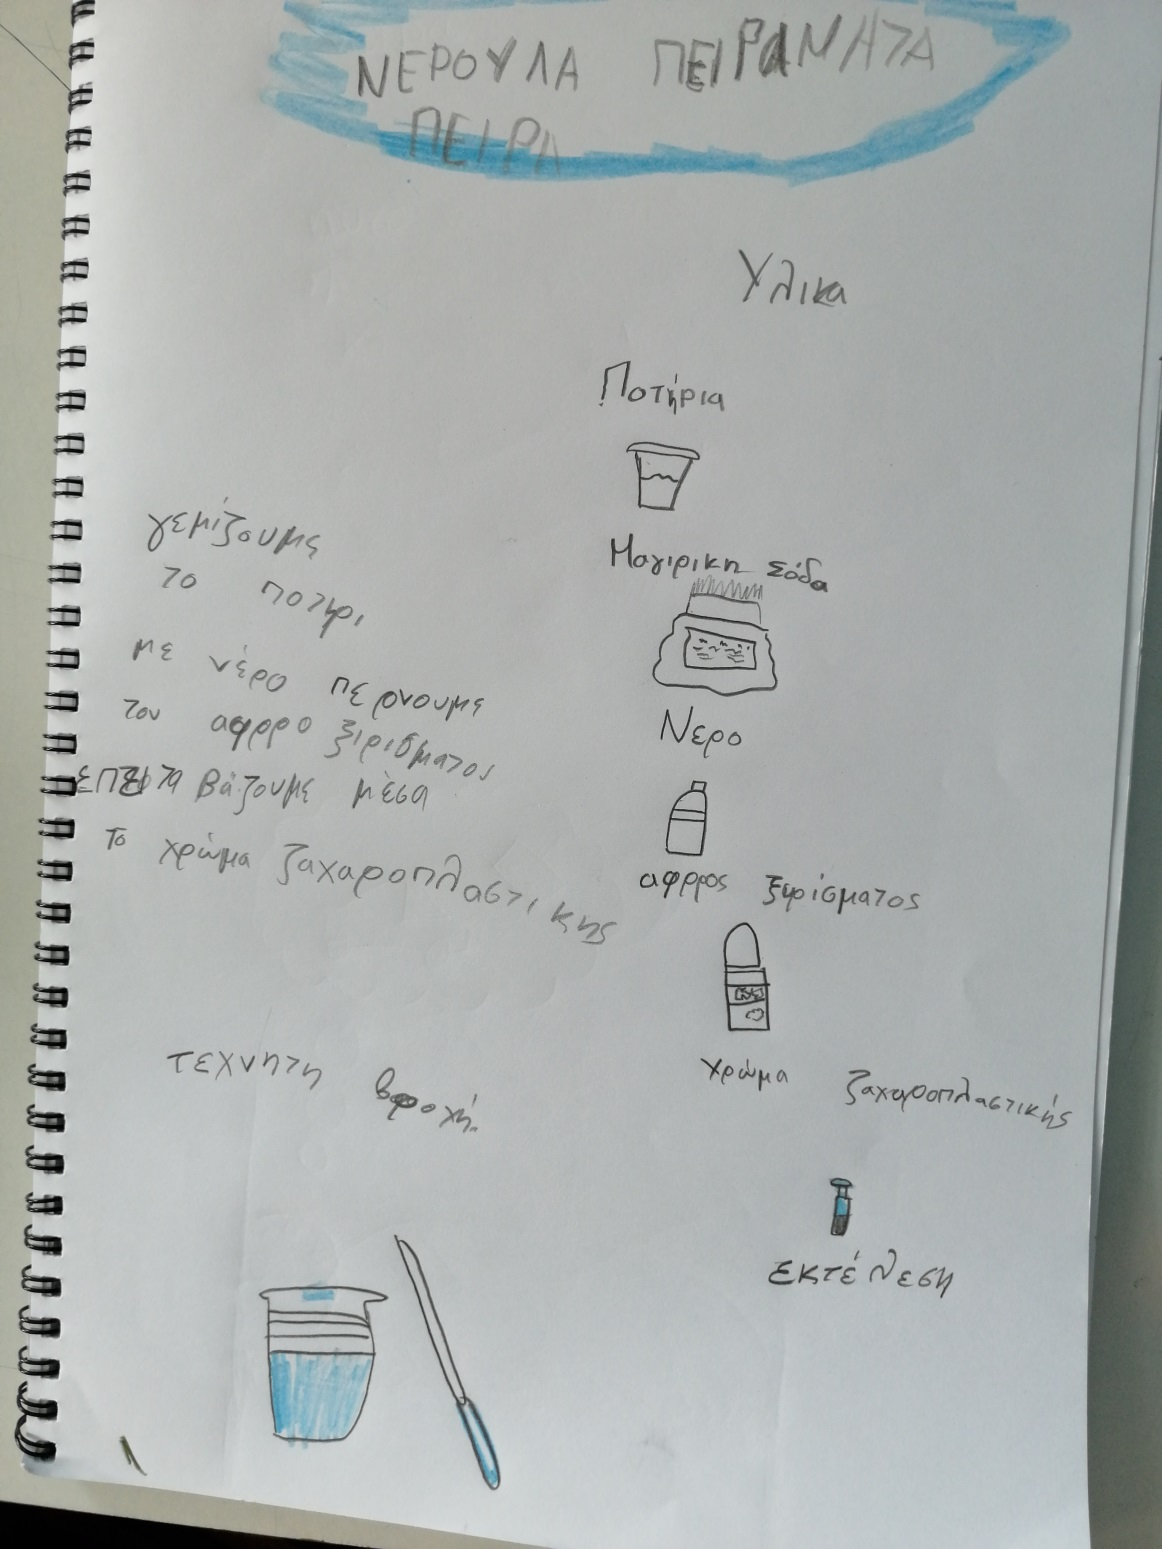 ΝΕΡΟΥΛΑ ΠΕΙΡΑΜΑΤΑ
ΠΕΙΡΑ
Υλικα
Ποτήρια
Μαγιρικη Σόδα
Νερο
αφρρος ξυρίσματος
χρώμα ζαχαροπλαστικής
εκτέλεση
γεμίζουμε
το ποτηρι
με νέρο περνουμε
τον αφρρο ξιρισματος
επειτα βάζουμε μέσα
το χρώμα ζαχαροπλαστικης
τεχνητη βροχή.